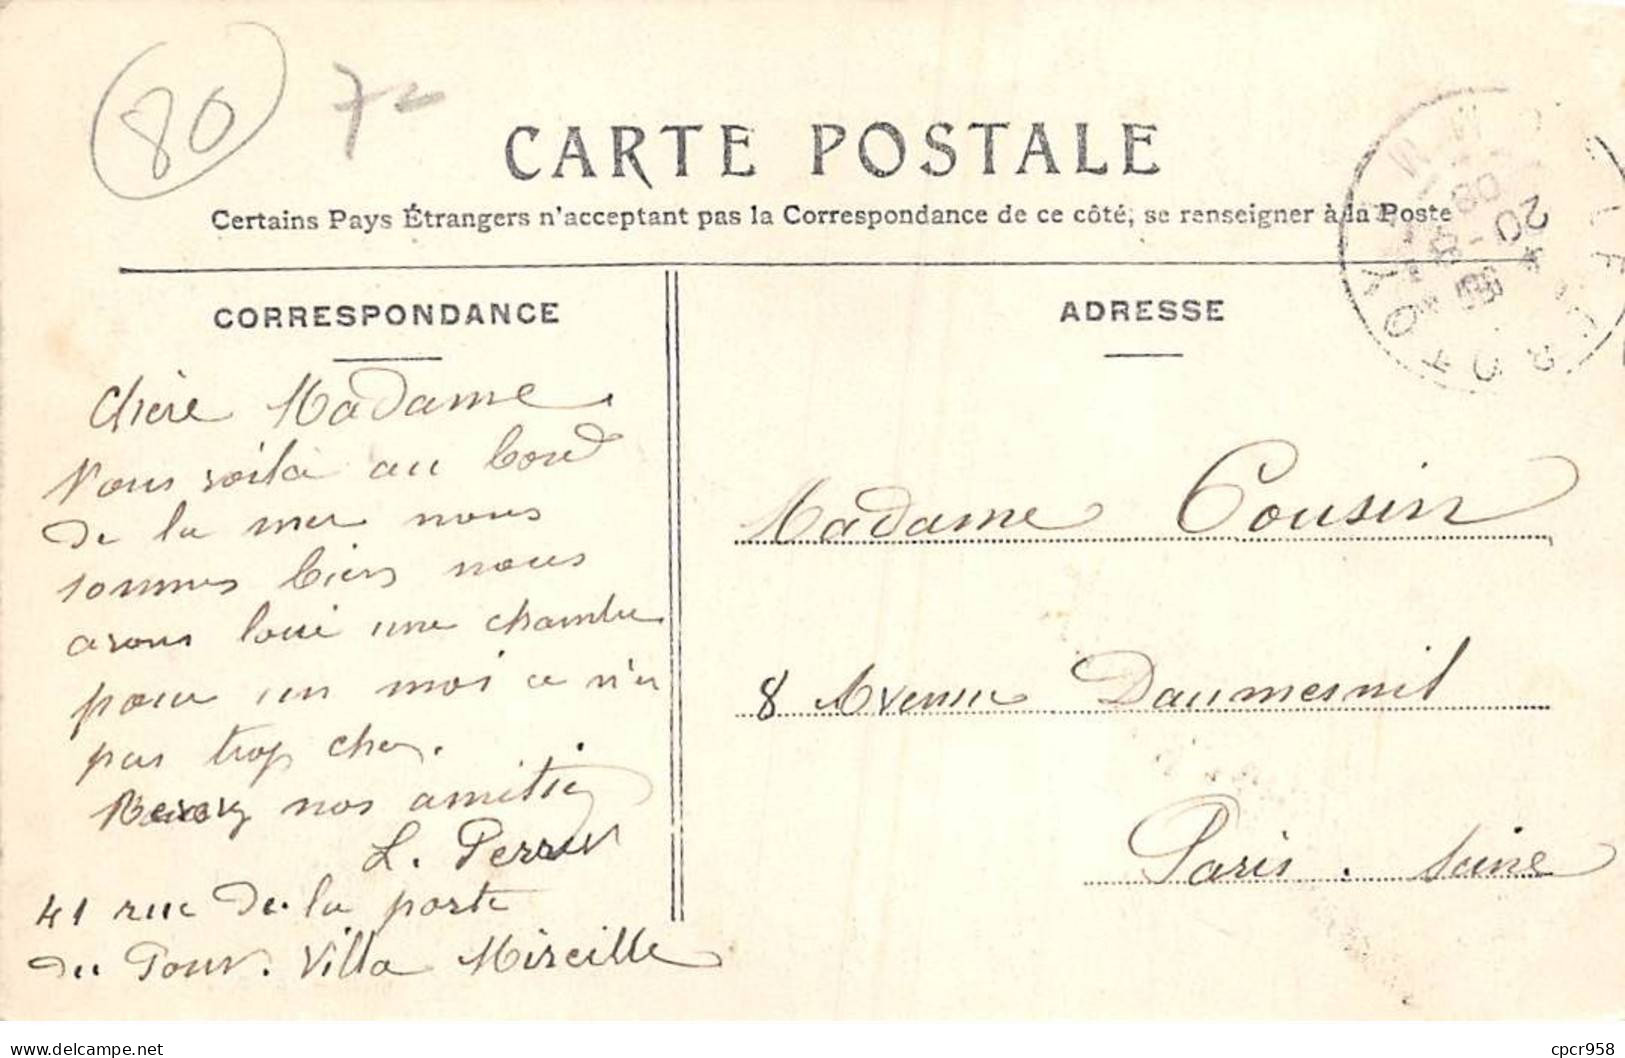 80
7-
CARTE POSTALE
Certains Pays Étrangers n'acceptant pas la Correspondance de ce côté; se renseigner à la Poste
CORRESPONDANCE
ADRESSE
chère Madame
Nous voilà au bord
de la mer nous
sommes biens nous
avons loué une chambre
pour un moi ce n'ai
pas trop cher.
Recevez nos amitié
L. Perrin
41 rue de la porte
du Pour. Villa Mireille
Madame Cousin
8 Avenue Daumesnil
Paris. Seine
delcampe.net
cpcr958